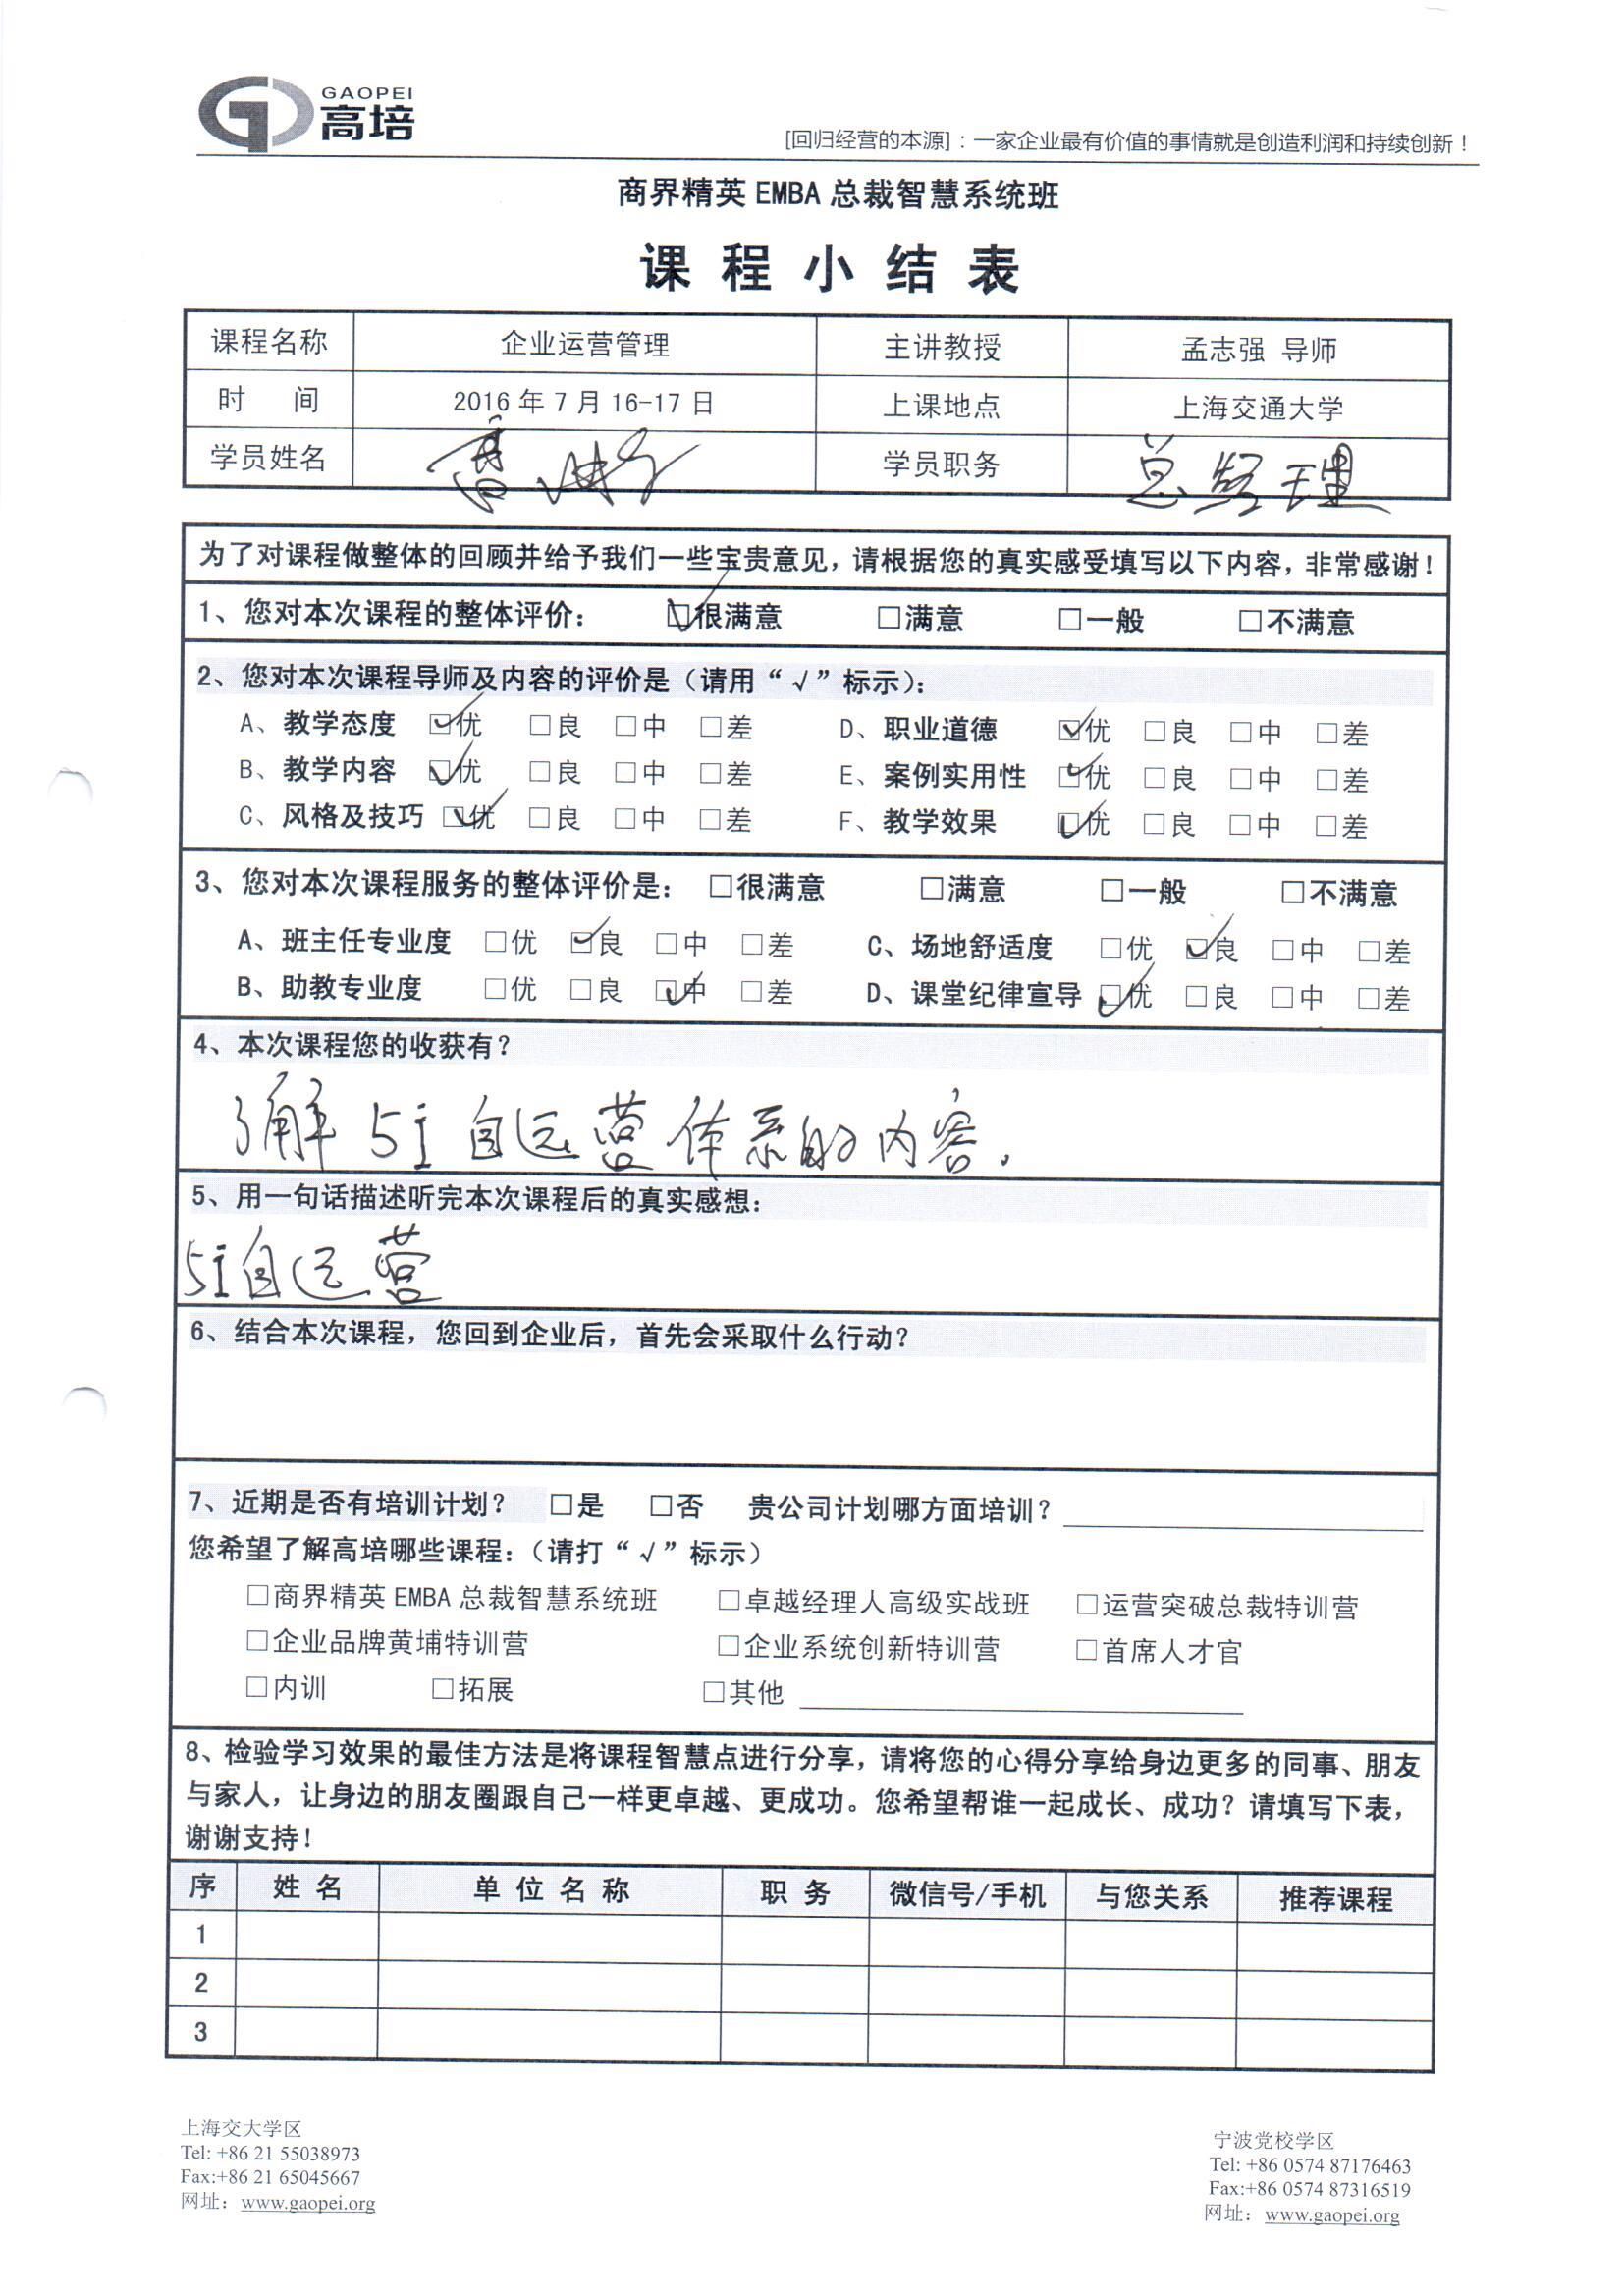 GAOPEI
高培
[回归经营的本源]：一家企业最有价值的事情就是创造利润和持续创新！
商界精英 EMBA 总裁智慧系统班
课 程 小 结 表
课程名称 企业运营管理 主讲教授 孟志强 导师
时 间 2016 年 7 月 16-17 日 上课地点 上海交通大学
学员姓名 学员职务 总经理
为了对课程做整体的回顾并给予我们一些宝贵意见，请根据您的真实感受填写以下内容，非常感谢！
1、您对本次课程的整体评价： ☑很满意 □满意 □一般 □不满意
2、您对本次课程导师及内容的评价是（请用“√”标示）：
A、教学态度 ☑优 □良 □中 □差 D、职业道德 ☑优 □良 □中 □差
B、教学内容 ☑优 □良 □中 □差 E、案例实用性 ☑优 □良 □中 □差
C、风格及技巧 ☑优 □良 □中 □差 F、教学效果 ☑优 □良 □中 □差
3、您对本次课程服务的整体评价是： □很满意 □满意 □一般 □不满意
A、班主任专业度 □优 ☑良 □中 □差 C、场地舒适度 □优 ☑良 □中 □差
B、助教专业度 □优 □良 ☑中 □差 D、课堂纪律宣导 ☑优 □良 □中 □差
4、本次课程您的收获有？
了解 5i 自运营体系的内容.
5、用一句话描述听完本次课程后的真实感想：
5i自运营
6、结合本次课程，您回到企业后，首先会采取什么行动？
7、近期是否有培训计划？ □是 □否 贵公司计划哪方面培训？
您希望了解高培哪些课程：（请打“√”标示）
□商界精英 EMBA 总裁智慧系统班 □卓越经理人高级实战班 □运营突破总裁特训营
□企业品牌黄埔特训营 □企业系统创新特训营 □首席人才官
□内训 □拓展 □其他
8、检验学习效果的最佳方法是将课程智慧点进行分享，请将您的心得分享给身边更多的同事、朋友
与家人，让身边的朋友圈跟自己一样更卓越、更成功。您希望帮谁一起成长、成功？请填写下表，
谢谢支持！
序 姓 名 单 位 名 称 职 务 微信号/手机 与您关系 推荐课程
1
2
3
上海交大学区
Tel: +86 21 55038973
Fax:+86 21 65045667
网址：www.gaopei.org
宁波党校学区
Tel: +86 0574 87176463
Fax:+86 0574 87316519
网址：www.gaopei.org